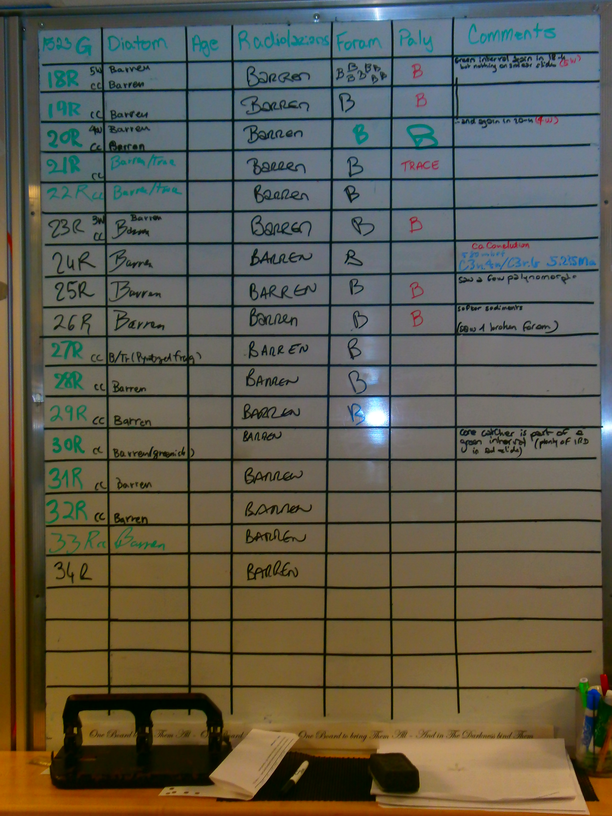 G Diatom Age Radiolarians Foram Paly Comments
18R 5W Barren BARREN B B B B B B B B Green interval again in 18R (5W)
cc Barren
19R cc Barren BARREN B B
20R 4W Barren BARREN B B - and again in 20R (4W)
cc Barren
21R cc Barren/trace BARREN B TRACE
22R cc Barren/trace BARREN B
23R 3W Barren BARREN B B
cc Barren
24R Barren BARREN B
25R Barren BARREN B B saw a few palynomorphs
26R Barren Barren B B softer sediments
(saw 1 broken foram)
27R cc B/Tr BARREN B
28R cc Barren BARREN B
29R cc Barren BARREN B
30R cc Barren (greenish) BARREN core catcher is part of a
green interval (plenty of IRD
31R cc Barren BARREN
32R cc Barren BARREN
33R cc Barren BARREN
34R BARREN
One Board to bring Them All - And in The Darkness bind Them